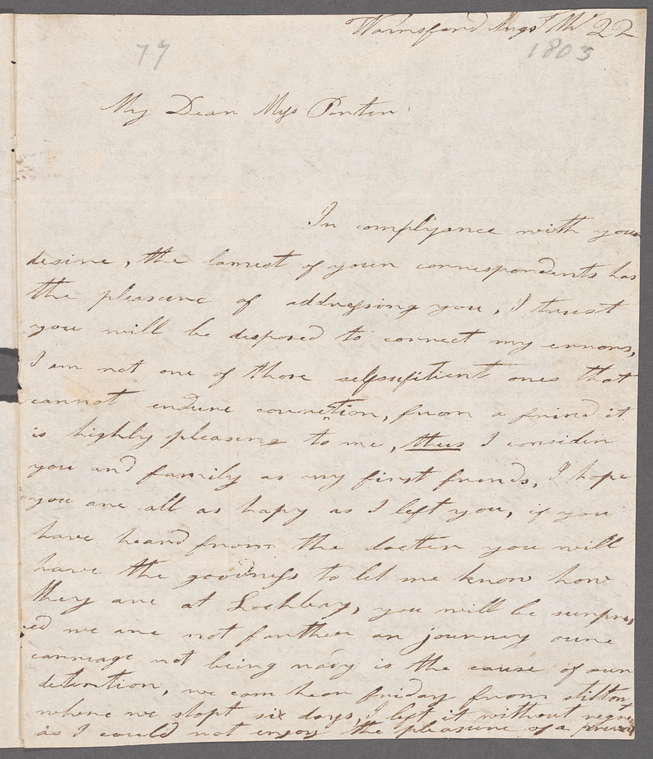 Wainsford Augst th 22
77
1803
My Dear Mrs Porten
In complyence with your
desire, the lamest of your correspondents has
the pleasure of addressing you, I trust
you will be disposed to correct my errors,
I am not one of those selfsufitient ones that
cannot endure correction, from a frind it
is highly pleasing to me, thus I consider
you and family as my first frends, I hope
you are all as hapy as I left you, if you
have heard from the docter you will
have the goodness to let me know how
they are at Lochbay, you will be surpris
ed we are not farther on journey oure
carriage not being rady is the cause of our
detention, we cam hear friday from stilton
where we stopt six days, I left it without regret
as I could not enjoy the pleasure of a